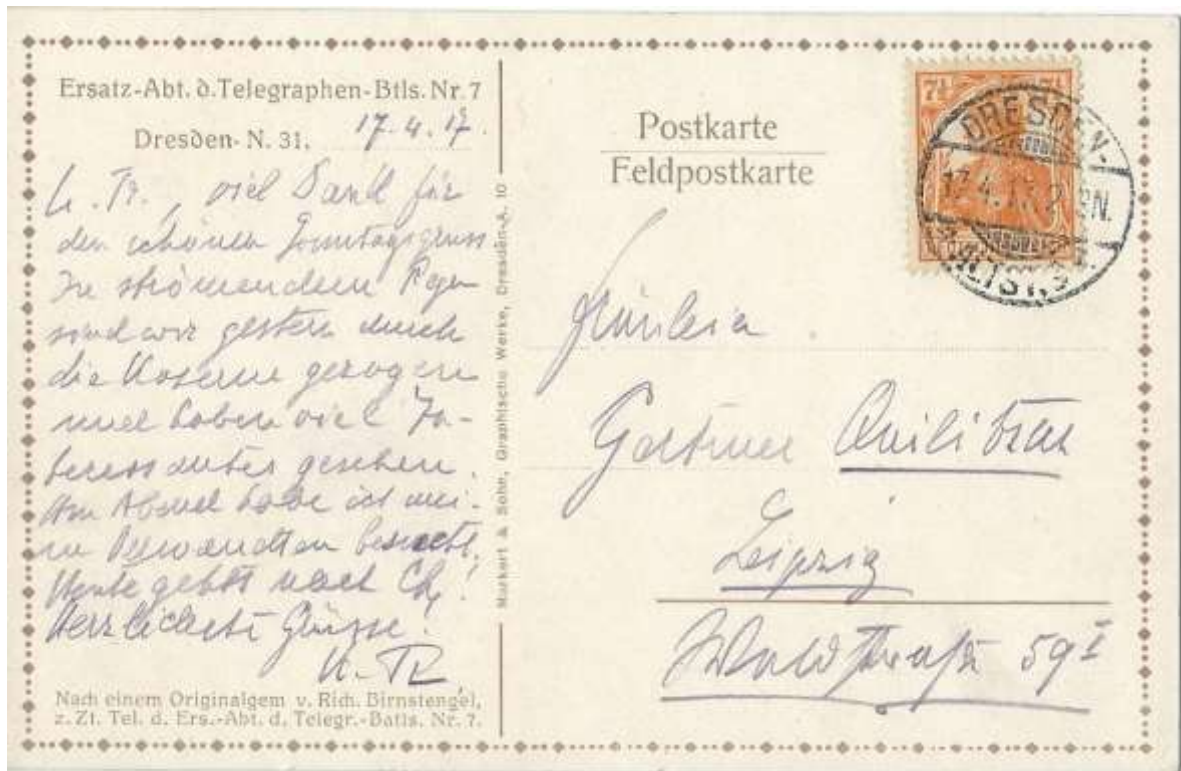 Ersatz-Abt. d. Telegraphen-Btls. Nr. 7
Dresden- N. 31, 17.4.17.
L. Tr., viel Dank für
den schönen Sonntagsgruss
In strömendem Regen
sind wir gestern durch
die Kaserne gezogen
und haben viel In-
teressantes gesehen.
Am Abend habe ich mei-
ne Verwandten besucht.
Heute gehts nach Ch!
Herzlichste Grüsse!
Nach einem Originalgem v. Rich. Birnstengel,
z. Zt. Tel. d. Ers.-Abt. d. Telegr.-Batls. Nr. 7.
Markert & Sohn, Graphische Werke, Dresden-A. 10
Postkarte
Feldpostkarte
7½ 7½
DRESDEN-
17.4.17. N.
ALTST.
Fräulein
Gertrud Quilitzsch
Leipzig
Waldstraße 59 I